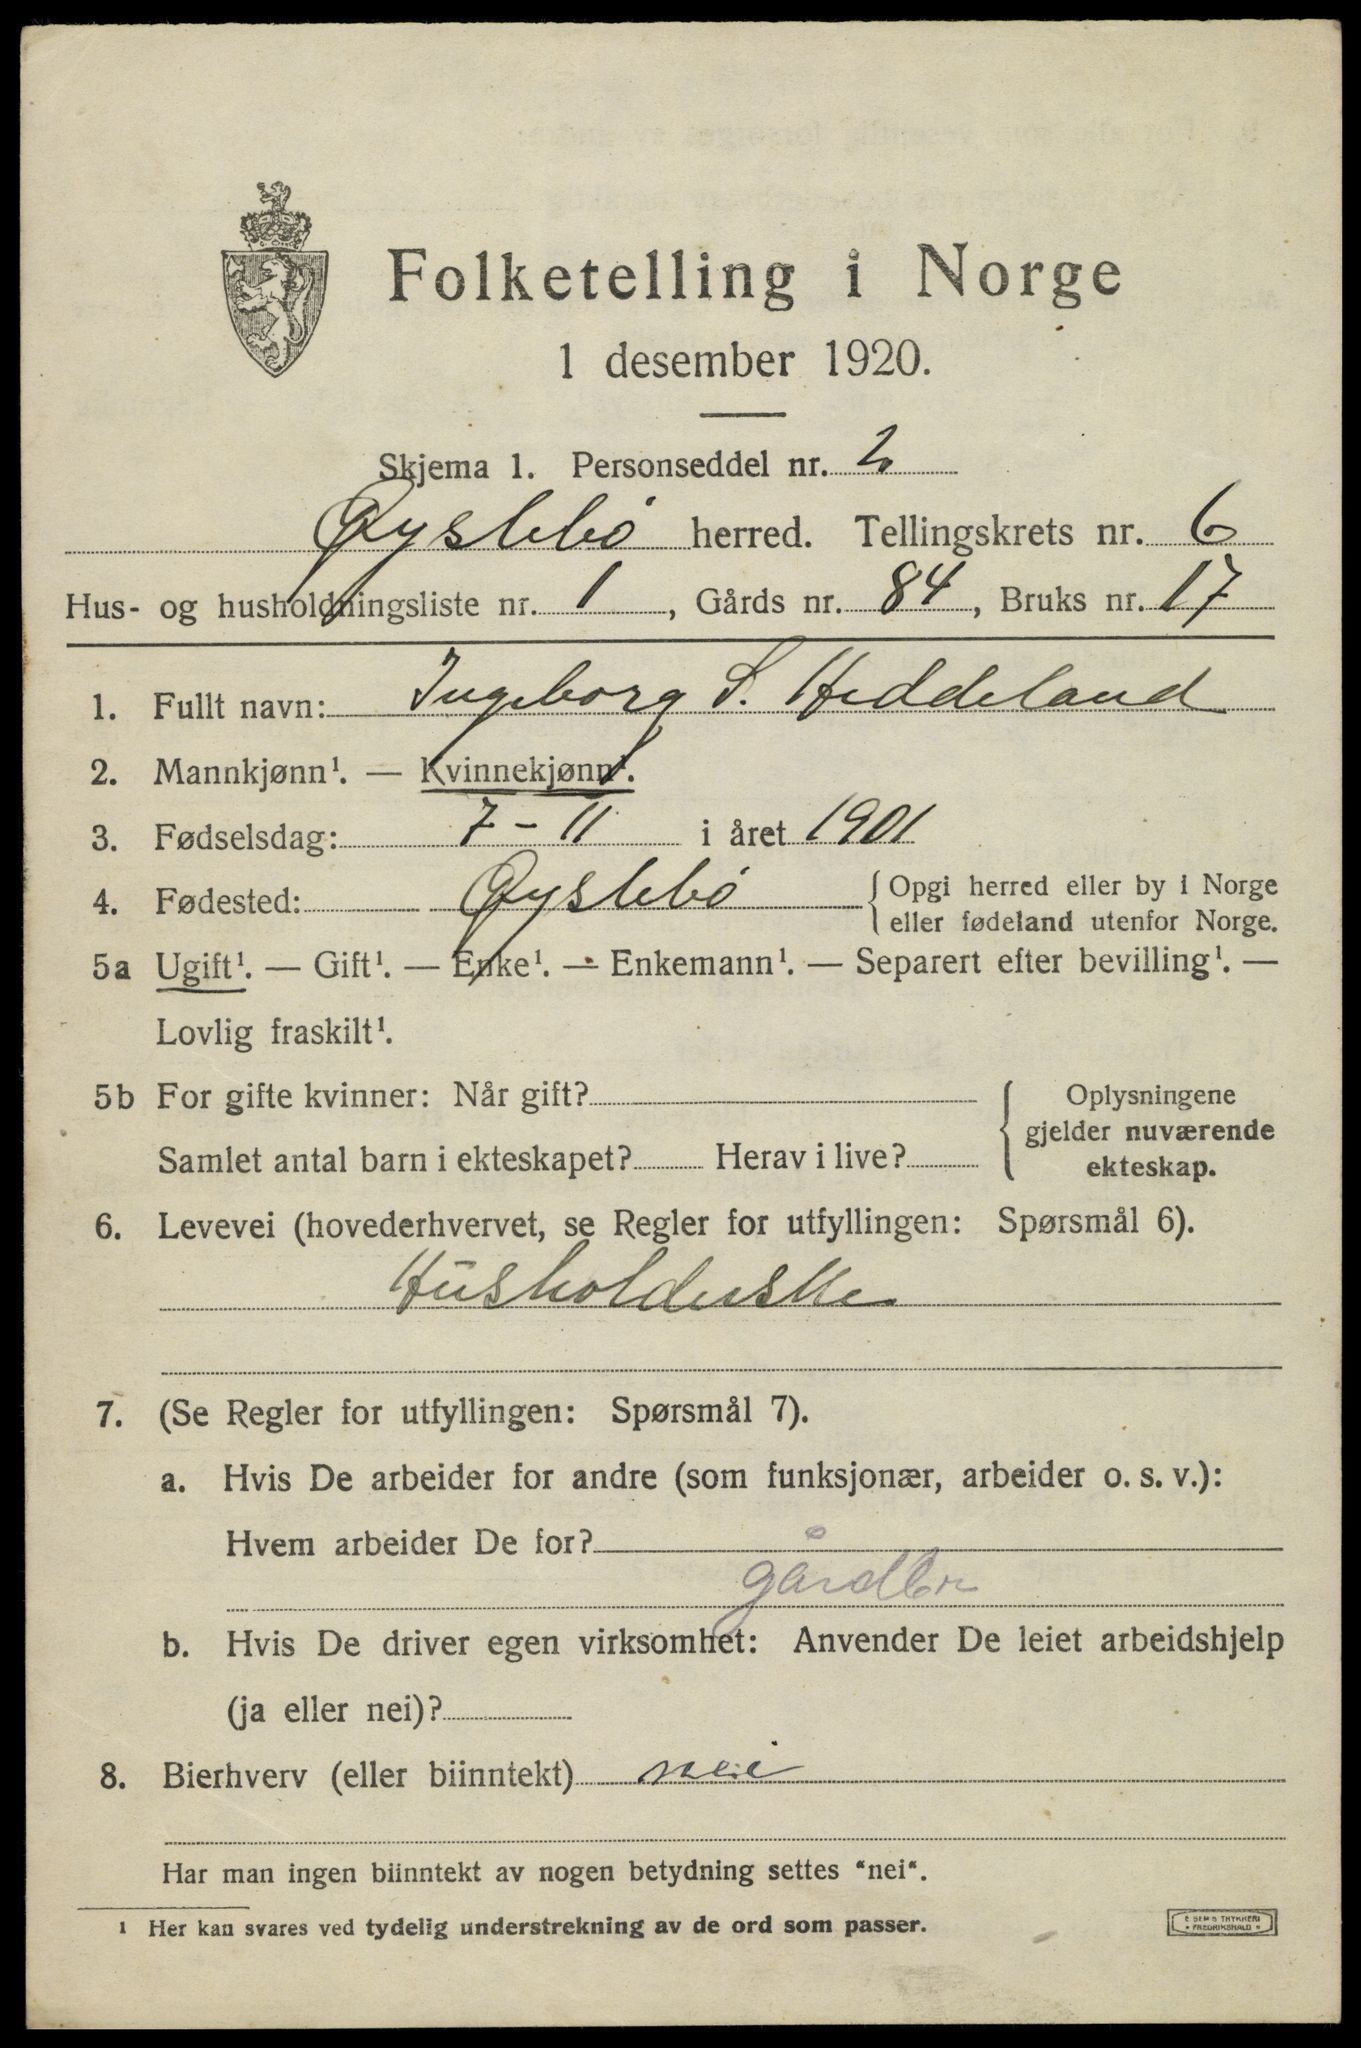 Folketelling i Norge
1 desember 1920.
Skjema 1. Personseddel nr. 2.
Øyslebö herred. Tellingskrets nr. 6
Hus- og husholdningsliste nr. 1, Gårds nr. 84, Bruks nr. 17
1. Fullt navn: Ingeborg S. Heddeland
2. Mannkjønn¹. — Kvinnekjønn¹.
3. Fødselsdag: 7 - 11 i året 1901
4. Fødested: Øyslebö { Opgi herred eller by i Norge
eller fødeland utenfor Norge.
5a Ugift¹. — Gift¹. — Enke¹. — Enkemann¹. — Separert efter bevilling¹. —
Lovlig fraskilt¹.
5b For gifte kvinner: Når gift? { Oplysningene
gjelder nuværende
Samlet antal barn i ekteskapet? Herav i live?
ekteskap.
6. Levevei (hovederhvervet, se Regler for utfyllingen: Spørsmål 6).
Husholderske
7. (Se Regler for utfyllingen: Spørsmål 7).
a. Hvis De arbeider for andre (som funksjonær, arbeider o. s. v.):
Hvem arbeider De for?
gårdbr
b. Hvis De driver egen virksomhet: Anvender De leiet arbeidshjelp
(ja eller nei)?
8. Bierhverv (eller biinntekt) nei
Har man ingen biinntekt av nogen betydning settes "nei".
¹ Her kan svares ved tydelig understrekning av de ord som passer.
E SEM S TRYKKERI
* FREDRIKSHALD *